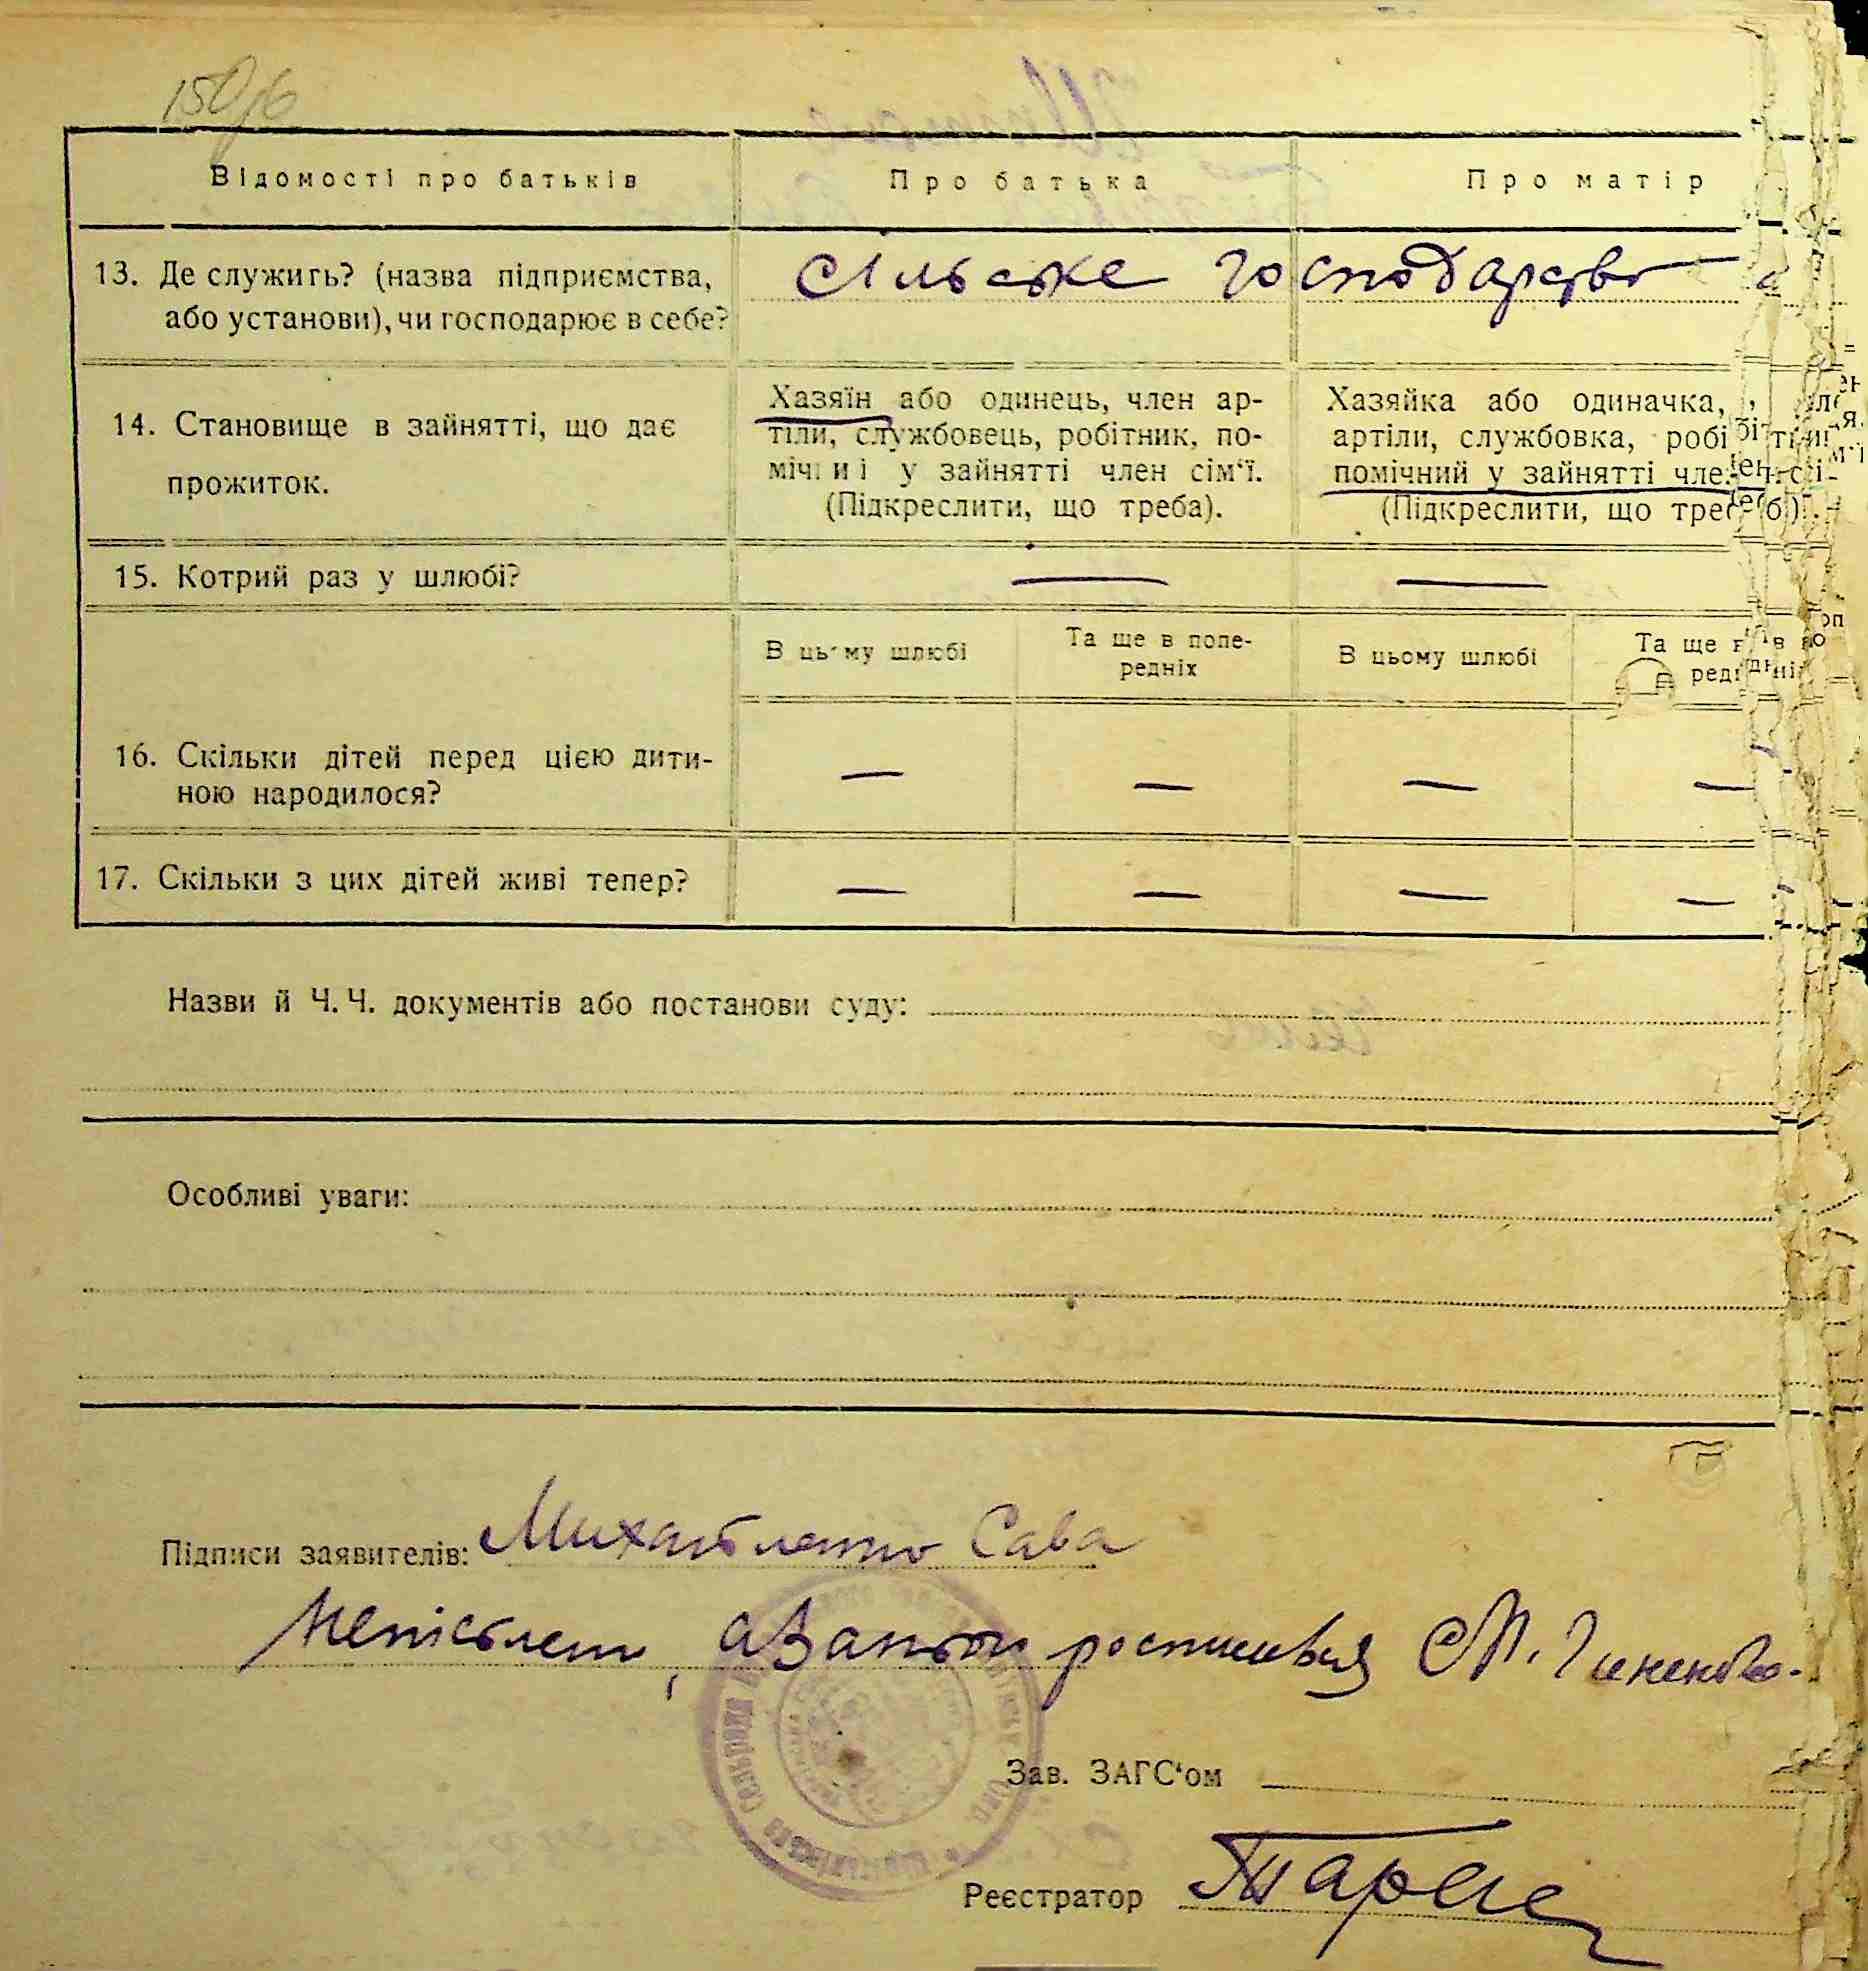 Відомості про батьків
Про батька
Про матір
13. Де служить? (назва підприємства,
або установи), чи господарює в себе?
сільське господарство
14. Становище в зайнятті, що дає
прожиток.
Хазяїн або одинець, член ар-
тіли, службовець, робітник, по-
у зайнятті член сім‘ї.
(Підкреслити, що треба).
Хазяйка або одиначка,
артіли, службовка,
помічний у зайнятті
(Підкреслити, що
15. Котрий раз у шлюбі?
В цьому шлюбі
Та ще в попе-
редніх
В цьому шлюбі
Та ще
16. Скільки дітей перед цією дити-
ною народилося?
— — — —
17. Скільки з цих дітей живі тепер?
— — — —
Назви й Ч. Ч. документів або постанови суду:
Особливі уваги:
Підписи заявителів: Михайленко Сава
Зав. ЗАГС‘ом
Реєстратор